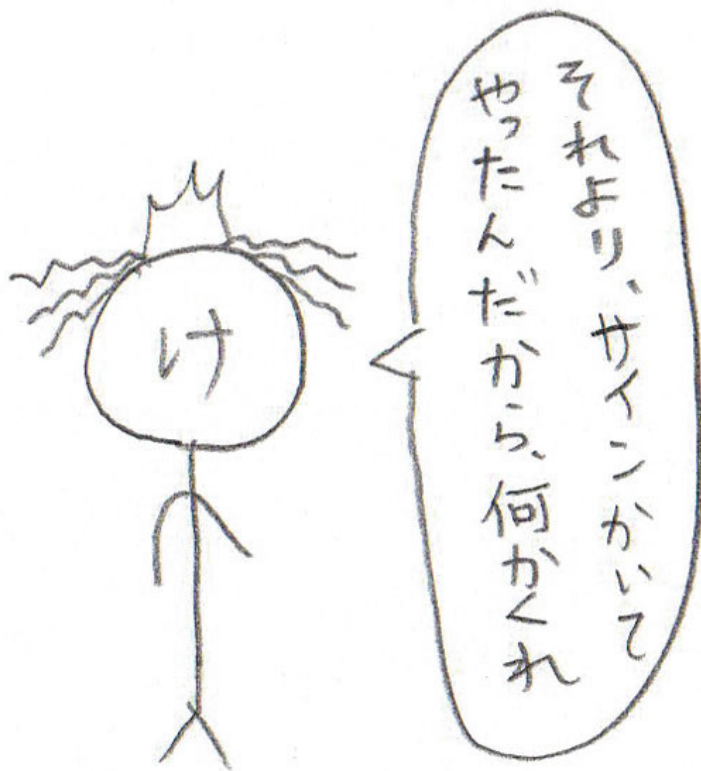 け
それより、サインかいて
やったんだから、何かくれ